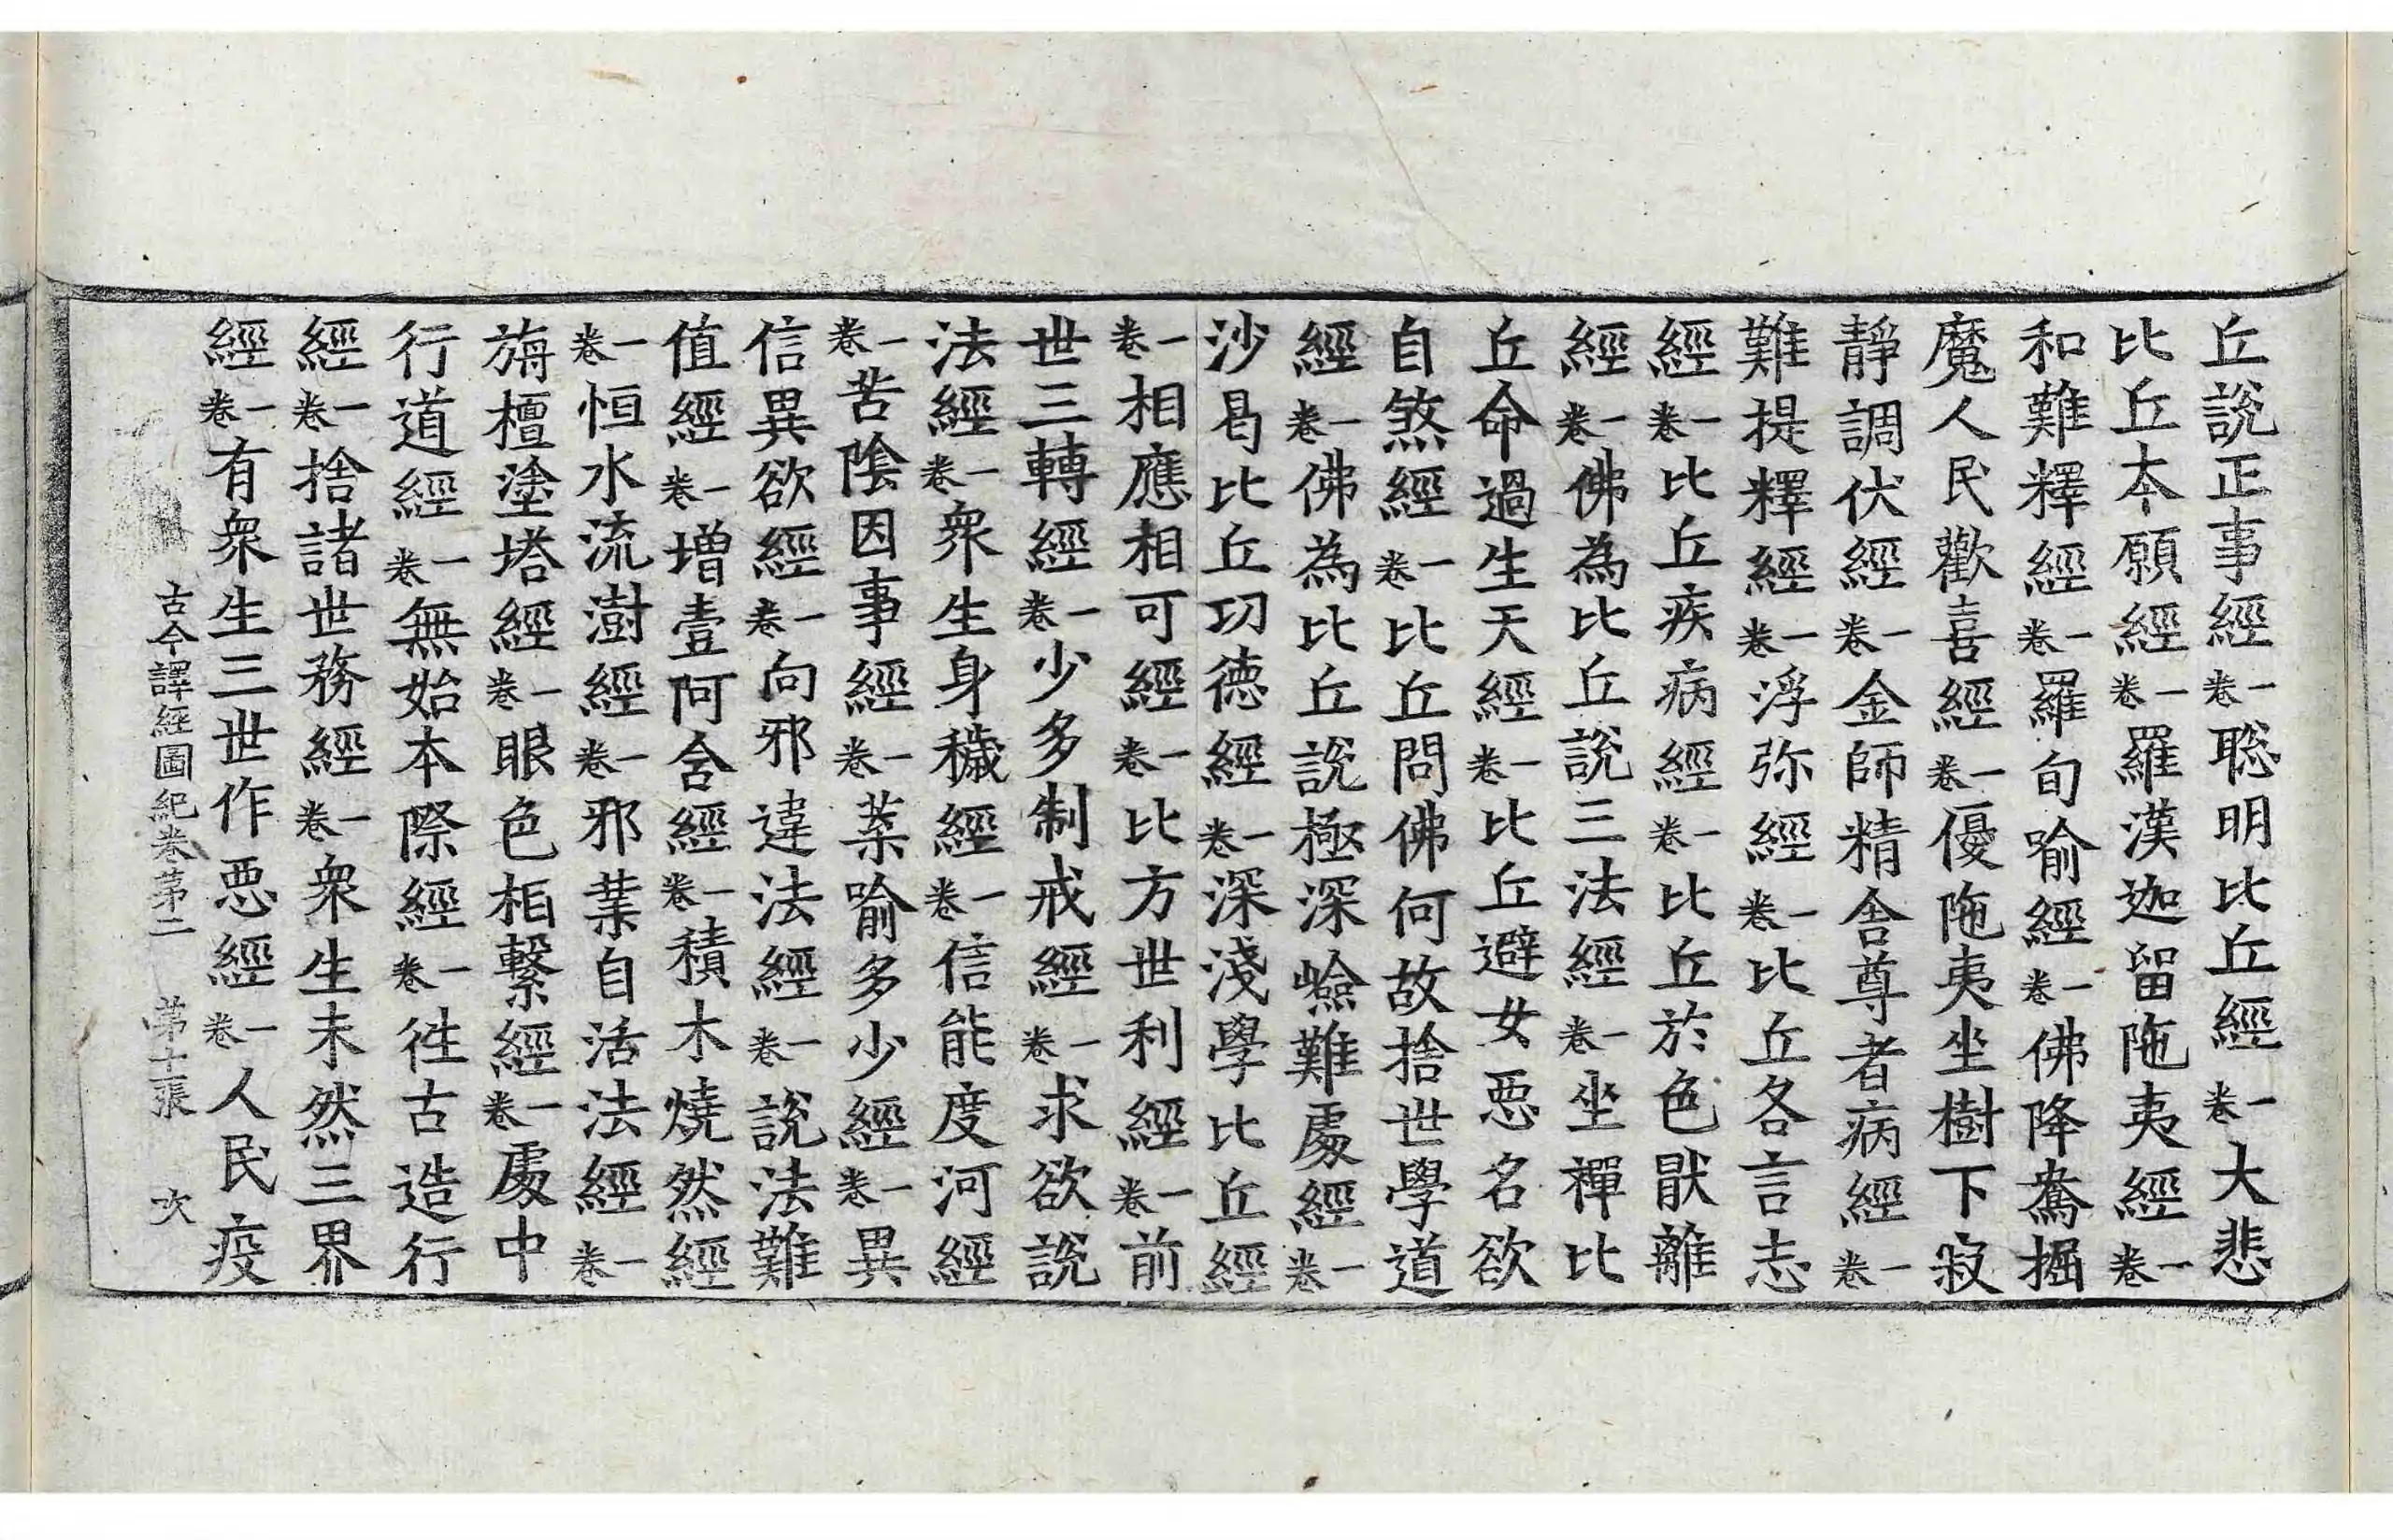 丘說正事經一卷聦明比丘經一卷大悲
比丘本願經一卷羅漢迦留陁夷經一卷
和難釋經一卷羅旬喻經一卷佛降鴦掘
魔人民歡喜經一卷優陁夷坐樹下寂
靜調伏經一卷金師精舍尊者病經一卷
難提釋經一卷浮弥經一卷比丘各言志
經一卷比丘疾病經一卷比丘於色猒離
經一卷佛為比丘說三法經一卷坐禪比
丘命過生天經一卷比丘避女惡名欲
自煞經一卷比丘問佛何故捨世學道
經一卷佛為比丘說極深嶮難處經一卷
沙曷比丘功德經一卷深淺學比丘經
一卷相應相可經一卷比方世利經一卷前
世三轉經一卷少多制戒經一卷求欲說
法經一卷衆生身穢經一卷信能度河經
一卷苦陰因事經一卷葉喻多少經一卷異
信異欲經一卷向邪違法經一卷說法難
值經一卷增壹阿含經一卷積木燒然經
一卷恒水流澍經一卷邪業自活法經一卷
旃檀塗塔經一卷眼色相繫經一卷處中
行道經一卷無始本際經一卷徃古造行
經一卷捨諸世務經一卷衆生未然三界
經一卷有衆生三世作惡經一卷人民疫
古今譯經圖紀卷第二 第十張 吹